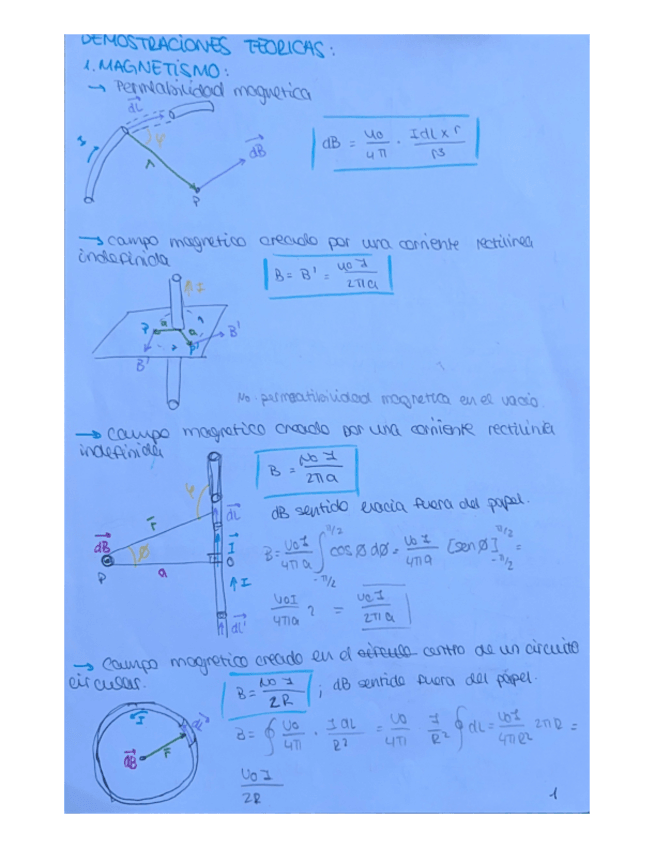 DEMOSTRACIONES TEORICAS:
1. MAGNETISMO:
→ Permeabilidad magnetica
dL
I
φ
r
dB
P
dB = uo/4π · IdL x r/r3
→ campo magnetico creado por una corriente rectilinea
indefinida
B = B' = uo I/2πa
I
P
a
a
B'
P'
B'
No permeatibilidad magnetica en el vacio.
→ campo magnetico creado por una corriente rectilinia
indefinida
B = No I/2πa
dB sentido hacia fuera del papel.
φ
dL
r
dB
Ø
I
P
a
O
I
dL'
B = uo I/4πa ∫ π/2 -π/2 cos Ø dØ = uo I/4πa [sen Ø] π/2 -π/2 =
uoI/4πa 2 = uo I/2πa
→ Campo magnetico creado en el centro de un circuito
circular.
B = No I/2R ; dB sentido fuera del papel.
I
dL
r
dB
B = ∮ uo/4π · I dL/R² = uo/4π · I/R² ∮ dL = uo I/4πR² 2πR =
uo I/2R
1